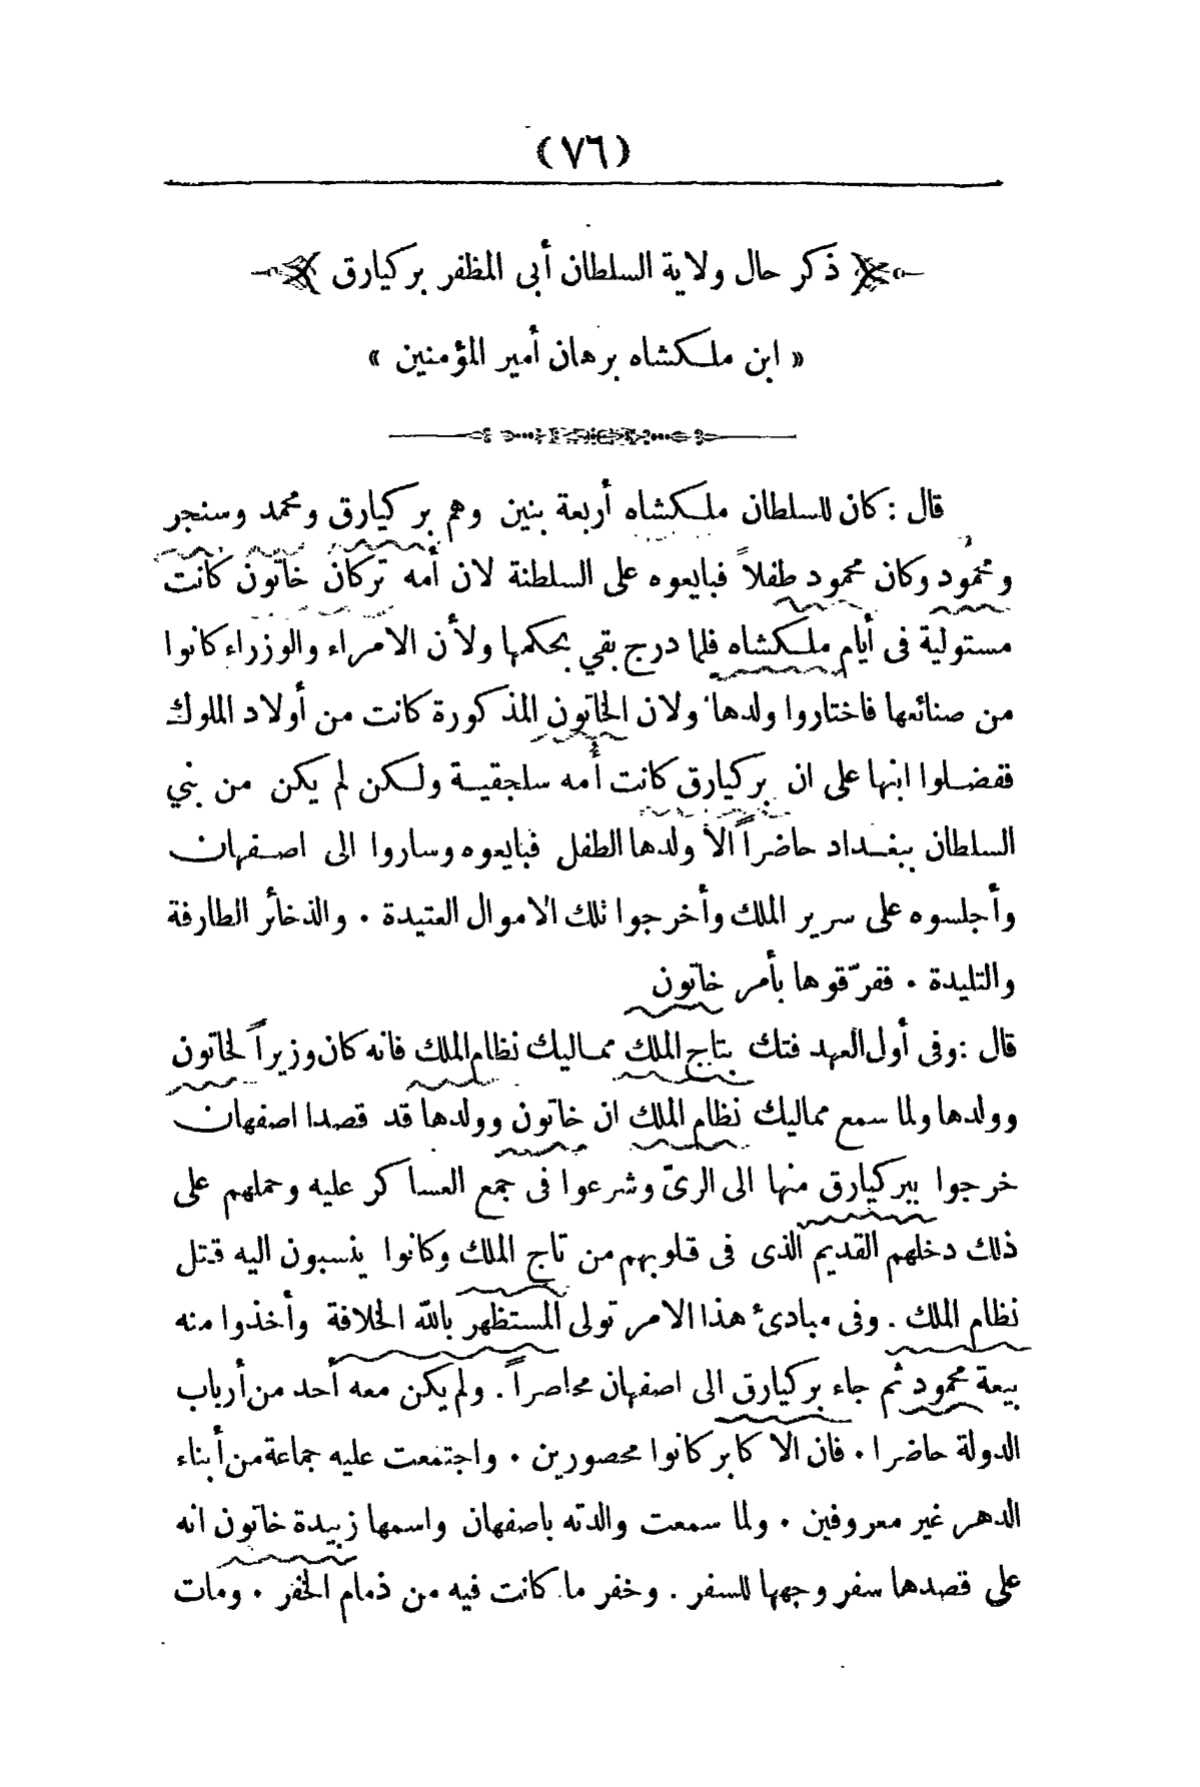 (٧٦)
ذكر حال ولاية السلطان أبى المظفر بركيارق
« ابن ملكشاه برهان أمير المؤمنين »
قال : كان للسلطان ملكشاه أربعة بنين وهم بركيارق ومحمد وسنجر
ومحمُود وكان محمود طفلاً فبايعوه على السلطنة لان أمه تركان خاتون كانت
مستولية فى أيام ملكشاه فلما درج بقي بحكمها ولأن الامراء والوزراء كانوا
من صنائعها فاختاروا ولدها ولان الخاتون المذكورة كانت من أولاد الملوك
ففضلوا ابنها على ان بركيارق كانت أمه سلجقية ولكن لم يكن من بني
السلطان ببغداد حاضراً الا ولدها الطفل فبايعوه وساروا الى اصفهان
وأجلسوه على سرير الملك وأخرجوا تلك الاموال العتيدة ۰ والذخائر الطارفة
والتليدة ۰ ففرّقوها بأمر خاتون
قال : وفى أول العهد فتك بتاج الملك مماليك نظام الملك فانه كان وزيراً لخاتون
وولدها ولما سمع مماليك نظام الملك ان خاتون وولدها قد قصدا اصفهان
خرجوا ببركيارق منها الى الرىّ وشرعوا فى جمع العساكر عليه وحملهم على
ذلك دخلهم القديم الذى فى قلوبهم من تاج الملك وكانوا ينسبون اليه قتل
نظام الملك . وفى مبادئ هذا الامر تولى المستظهر بالله الخلافة وأخذوا منه
بيعة محمود ثم جاء بركيارق الى اصفهان محاصراً . ولم يكن معه أحد من أرباب
الدولة حاضرا ۰ فان الاكابر كانوا محصورين ۰ واجتمعت عليه جماعة من أبناء
الدهر غير معروفين ۰ ولما سمعت والدته باصفهان واسمها زبيدة خاتون انه
على قصدها سفر وجهها للسفر . وخفر ما كانت فيه من ذمام الخفر ۰ ومات